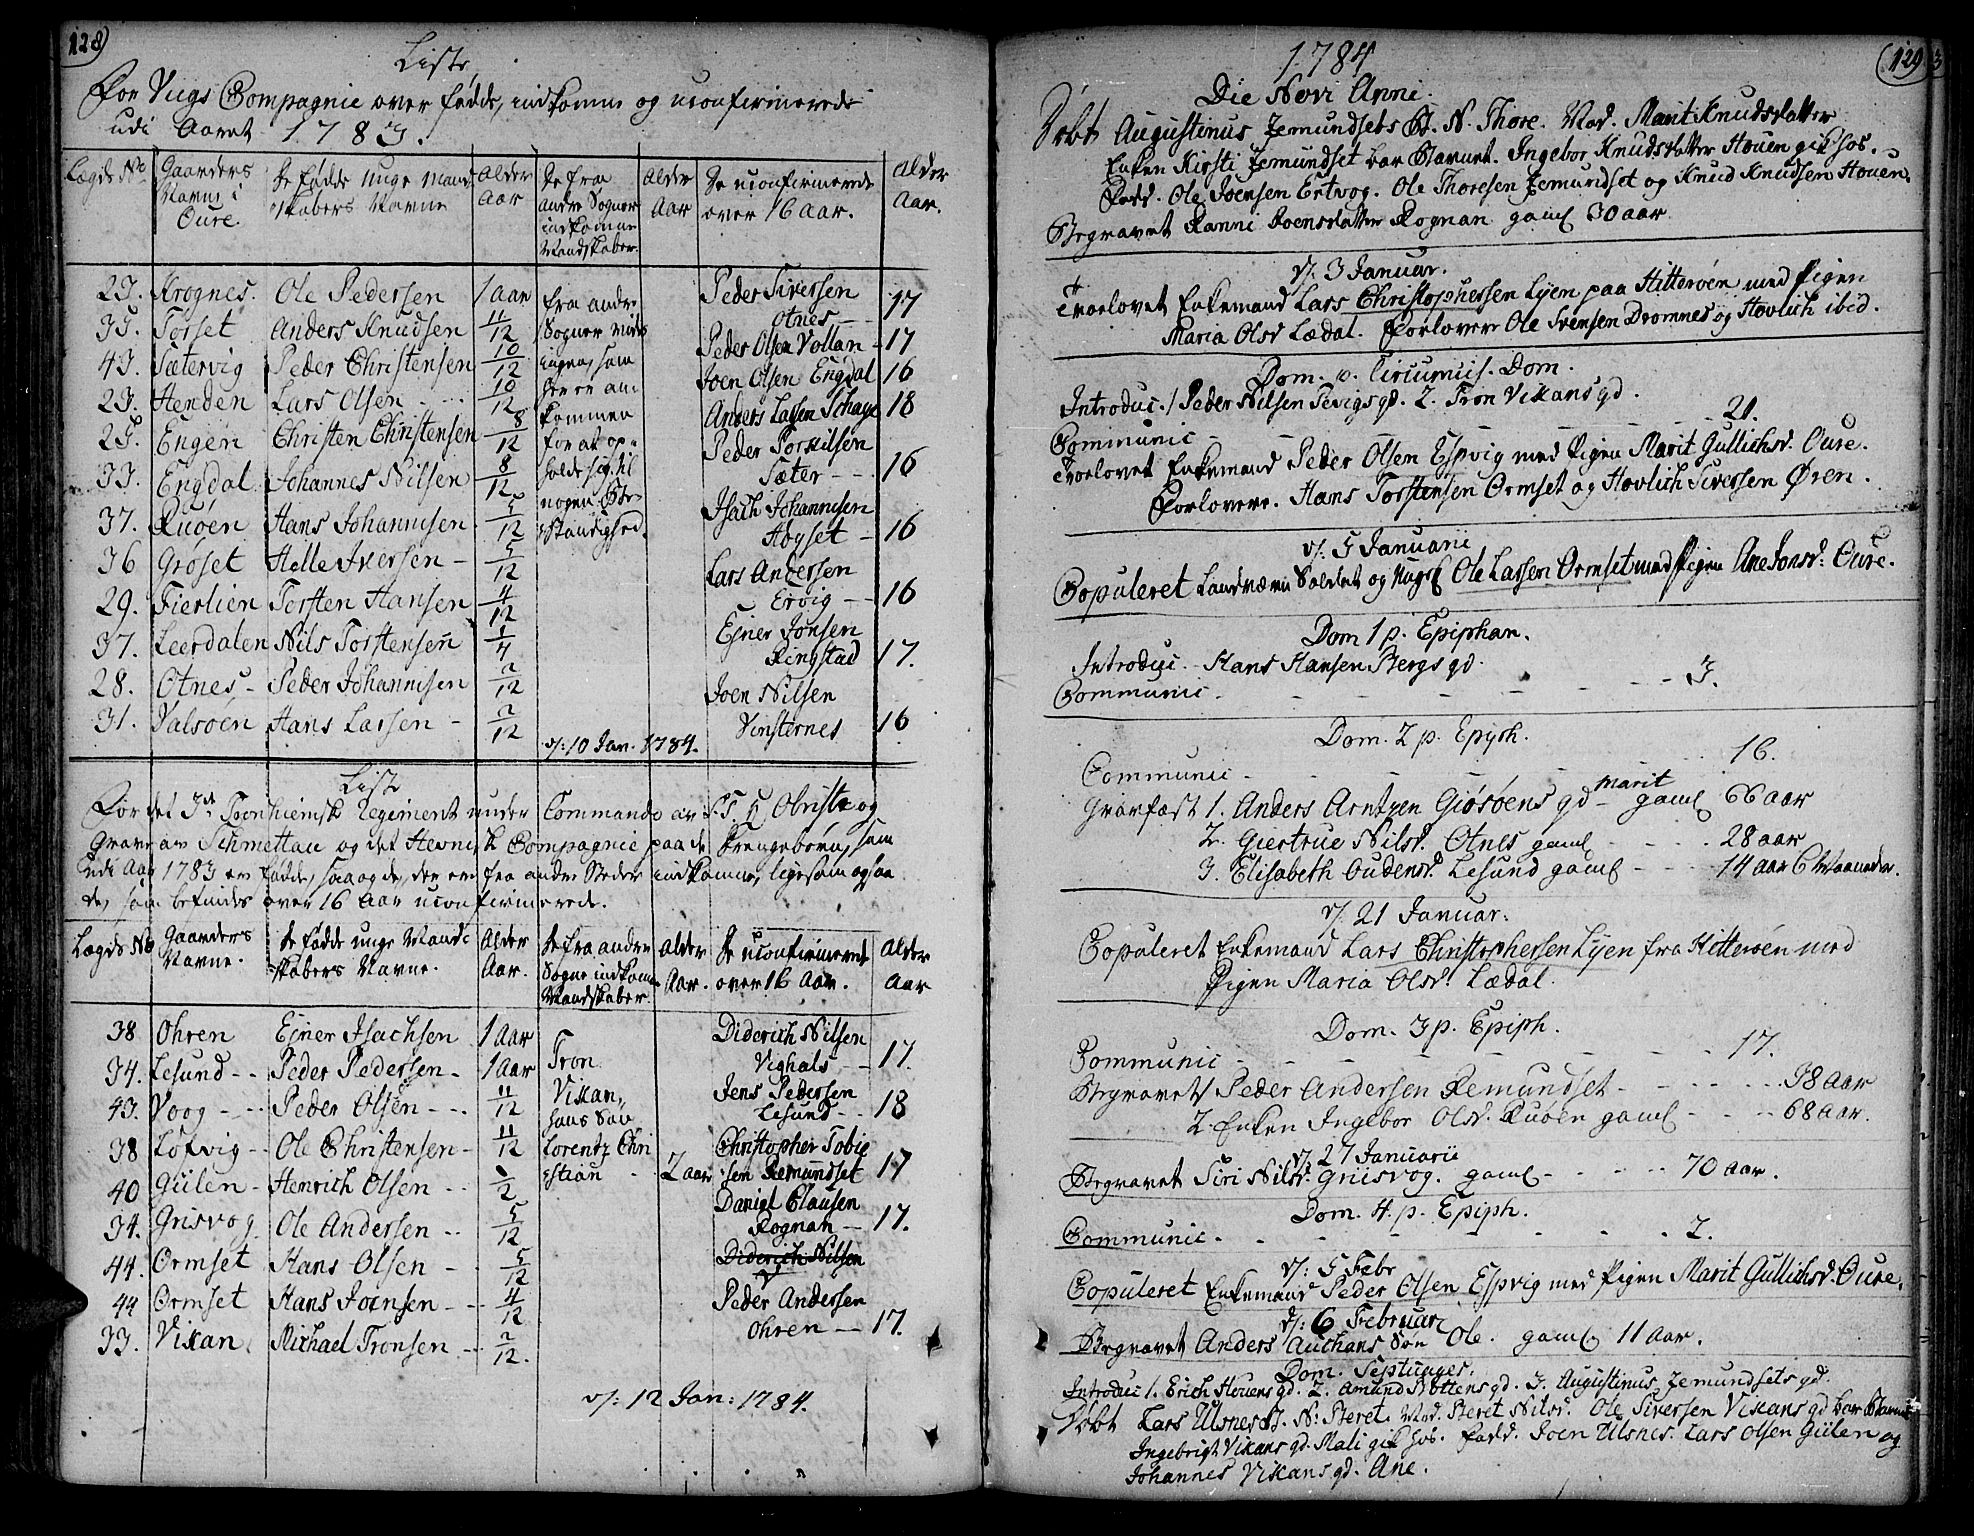 128)
Liste
For Vugs Compagnie over fødde, indkomne og uconfirmerede
udi Aaret 1783.
Lægds No Gaarders Navne i Oure. De fødde unge Mandskabers Navne Alder Aar De fra andre Sogner indkomne Mandskaber. Alder Aar De uconfirmerede over 16 Aar. Alder Aar.
23. Krognes. Ole Pedersen 1 Aar fra andre Peder Siversen
35. Torset Anders Knudsen 11/12 Sogner Otnes - 17
43. Sætervig Peder Christensen 10/12 ingen, som Peder Olsen Vollan - 17
23. Henden Lars Olsen - 10/12 Joen Olsen Engdal 16
25. Engen Christen Christensen 8/12 kommen Anders Lassen Schage 18
33. Engdal Johannes Nilsen 8/12 for at op= Peder Torkilsen
37. Ruøen Hans Johannisen 5/12 holde sig til Sæter - - 16
36 Grøset Helle Iversen - 5/12 nogen Be= Isach Johannisen
29. Fierlien Torsten Hansen 4/12 standighed. Høyset - 16
37. Leerdalen Nils Torstensen 1/4 Lars Andersen
28. Otnes - Peder Johannisen 2/12 Ervig - 16
31. Valsøen Hans Larsen - 2/12 Ejner Jonsen
Ringstad 17.
Joen Nilsen
Vinsternes 16
d: 10 Jan. 1784.
Liste
For det 3de Tronhiemsk Regiment under Commando av S. T. H Obriste og
Grave av Schmettau og det Hevnesk Compagnie paa de Drengebørn, som
udi Aar 1783 ere fødde, saa og de, der ere fra andre Steder indkomne, ligesom ogsaa
de, som befindes over 16 Aar uconfirmerede.
Lægds No Gaarders Navne. De fødde unge Mandskabers Navne. Alder Aar. De fra andre Sogne indkomne Mandskaber. Alder Aar. De uconfirmerede over 16 Aar. Alder Aar
38 Ohren Ejner Isachsen 1 Aar Diderich Nilsen
34. Lesund - - Peder Pedersen - 1 Aar Tron Vighals - 17.
43. Voog - - - Peder Olsen - - - 11/12 Vikan, Jens Pedersen
38 Lofvig - - Ole Christensen - 11/12 hans Søn Lesund - - 18
40 Gülen - Henrich Olsen - - 1/2 Lorentz Chri Christopher Tobie
34. Grisvog Ole Andersen - - 5/12 stian - 2 aar sen Remundset 17
44. Ormset Hans Olsen - - 5/12 Daniel Clausen
44 Ormset Hans Joensen - - 4/12 Rognan - 17.
33. Vikan Michael Tronsen - - 2/12. Diderich Nilsen
Peder Andersen
Ohren - 17.
d: 12 Jan: 1784.
(129
1784
Die Novi Anni.
Døbt Augustinus Jemundsets B. N. Thore. Mod. Marit Knudsdatter
Enken Kirsti Jemundset bar Barnet. Ingebor Knudsdatter Houen gik hos.
Fadd. Ole Joensen Ertvog. Ole Thoresen Jemundset og Knud Knudsen Houen.
Begravet Ranni Joensdatter Rognan gaml 30 aar
d: 3 Januar.
Trorlovet Enkemand Lars Christophersen Lyen paa Hitterøen med Pigen
Maria Olsd Lædal. Forlovere Ole Svensen Dromnes og Hovlich ibid.
Dom. p. Circumcis. Dom.
Introduc. 1 Peder Nilsen Sevigs qd. 2. Tron Vikans qd.
Communic - - - - - 21.
Trorlovet Enkemand Peder Olsen Espvig med Pigen Marit Gullichsd. Oure.
Forlovere. Hans Torstensen Ormset og Hovlich Siversen Øren.
d: 5 Januarii
Copuleret Landværn Soldat og Ungk Ole Larsen Ormset med Pigen Ane Jonsd: Oure.
Dom 1 p. Epiphan.
Introduc. - Hans Hansen Bergs qd.
Communic. - - - - - 3.
Dom. 2 p. Epiph.
Communic - - - - - 16.
Gravfæst 1. Anders Arntzen Giøsøens qd - Marit gaml 66 aar
2. Giertrue Nilsd. Otnes gaml - - - 28 aar
3. Elisabeth Oudensd. Lesund gaml - - - 14 aar 6 Maaneder.
d. 21 Januar:
Copuleret Enkemand Lars Christophersen Lyen fra Hitterøen med
Pigen Maria Olsd. Lædal.
Dom. 3 p. Epiph.
Communic - - - - - 17.
Begravet 1 Peder Andersen Remundset - - - 38 aar
2. Enken Ingebor Olsd. Ruøen gaml - - - 68 aar.
d. 27 Januarii
Begravet Siri Nilsd. Griisvog. gaml - - - 70 aar.
Dom. 4. p. Epiph.
Communic - - - - - 2.
d: 5 Febr
Copuleret Enkemand Peder Olsen Espvig med Pigen Marit Gullichsd. Oure.
d: 6 Februar
Begravet Anders Auchans Søn Ole. gaml 11 aar.
Dom. Septuages.
Introduc 1. Erich Houens qd. 2. Amund Nottens qd. 3. Augustinus Jemundsets qd.
Døbt Lars Ulsnes B. N: Beret. Mod. Berit Nilsd. Ole Siversen Vikans qd bar Barnet
Ingebrigt Vikans qd. Mali gik hos. Fadd. Joen Ulsnes. Lars Olsen Gülen og
Johannes Vikans qd. Ane.